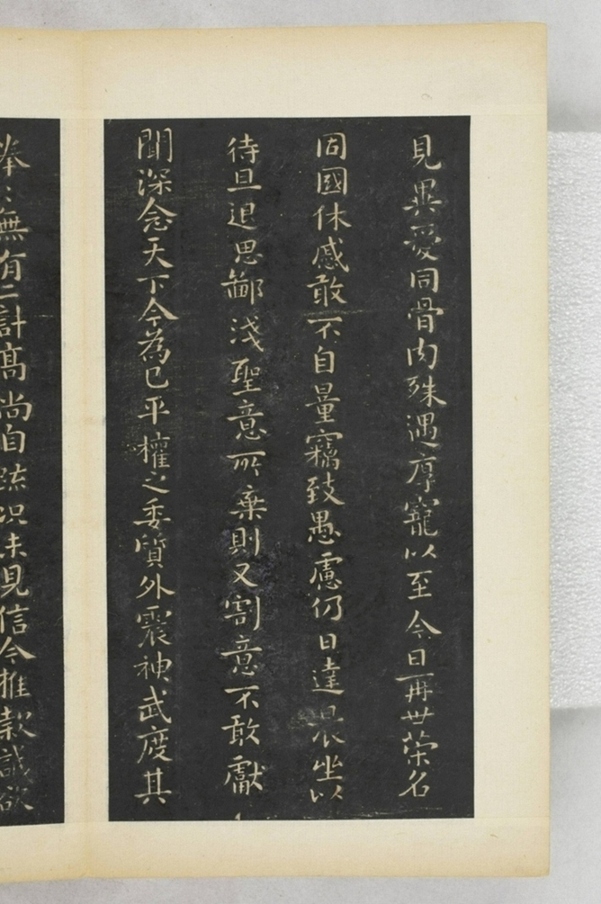 見異愛同骨肉殊遇厚寵以至今日再世榮名
同國休慼敢不自量竊致愚慮仍日達晨坐以
待旦退思鄙淺聖意所棄則又割意不敢獻
聞深念天下今為已平權之委質外震神武度其
拳拳無有二計高尚自疏況未見信今推款誠欲